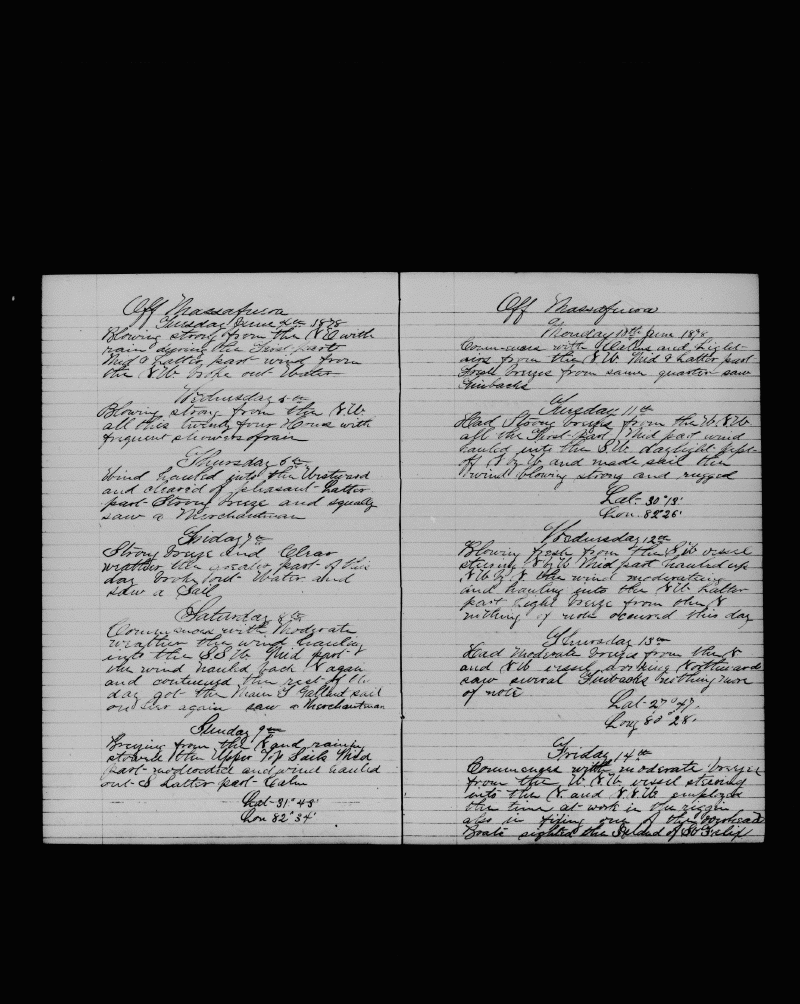 Off Massafuera
Tuesday June 4th 1878
Blowing strong from the N E with
rain during the First part
Mid & Latter part wind from
the N W. broke out Water
Wednesday 5th
Blowing strong from the N W.
all this twenty four Hours with
frequent showers of rain
Thursday 6th
Wind hauled into the Westward
and cleared of pleasant Latter
part Strong breeze and squally
saw a Merchantman
Friday 7th
Strong breeze and Clear
weather the greater part of this
day broke out Water and
saw a Sail
Saturday 8th
Commences with Moderate
weather the wind hauling
into the S S W. Mid part
the wind hauld back N again
and continued the rest of the
day got the Main T Gallant sail
on her again saw a Merchantman
Sunday 9th
Breezing from the N and rainy
stowed the Upper Top Sails Mid
part moderate and wind hauled
out S Latter part Calm
Lat 31° 43'
Lon 82° 34'
Off Massafuera
Monday 10th June 1878
Commences with Calms and Light
airs from the N W. Mid & Latter part
Fresh breezes from same quarter saw
Finbacks
Tuesday 11th
Had Strong breezes from the W. N W
all the First part Mid part wind
hauled into the S W. daylight kept
off N by W and made sail the
wind blowing strong and rugged
Lat 30° 13'
Lon 82° 26'
Wednesday 12th
Blowing fresh from the S W vessel
steering N by W Mid part hauled up
N W by N the wind moderating
and hauling into the N W Latter
part Light breeze from the N
nothing of note occured this day
Thursday 13th
Had Moderate breeze from the N
and N W vessel working Northward
saw several Finbacks nothing more
of note
Lat 27° 47'
Long 80° 28'
Friday 14th
Commences with moderate breeze
from the W. N W. vessel steering
into the N. and N. N W employed
the time at work in the riggin
also in fixing one of the overhead
Boats sighted the Island of St Felix